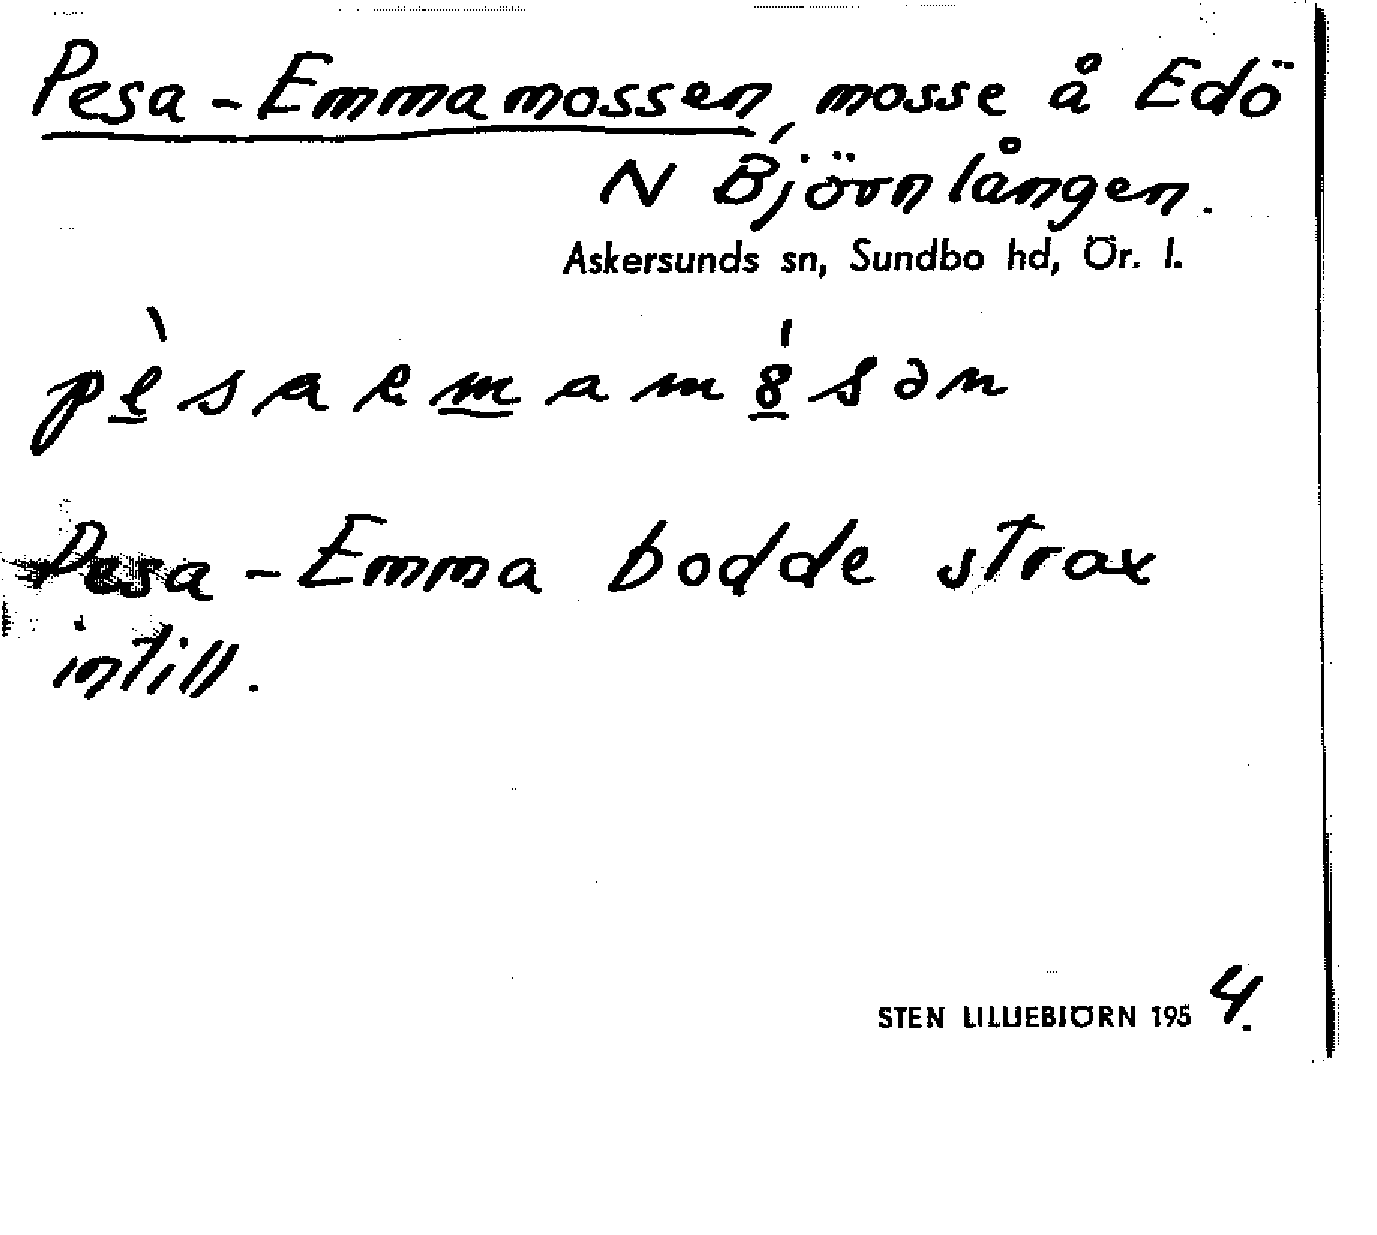 Pesa-Emmamossen, mosse å Edö
N Björnlången.
Askersunds sn, Sundbo hd, Ör. l.
pè̠saema̠mam8̠́sən
Pesa-Emma bodde strax
intill.
STEN LILLIEBJÖRN 1954.